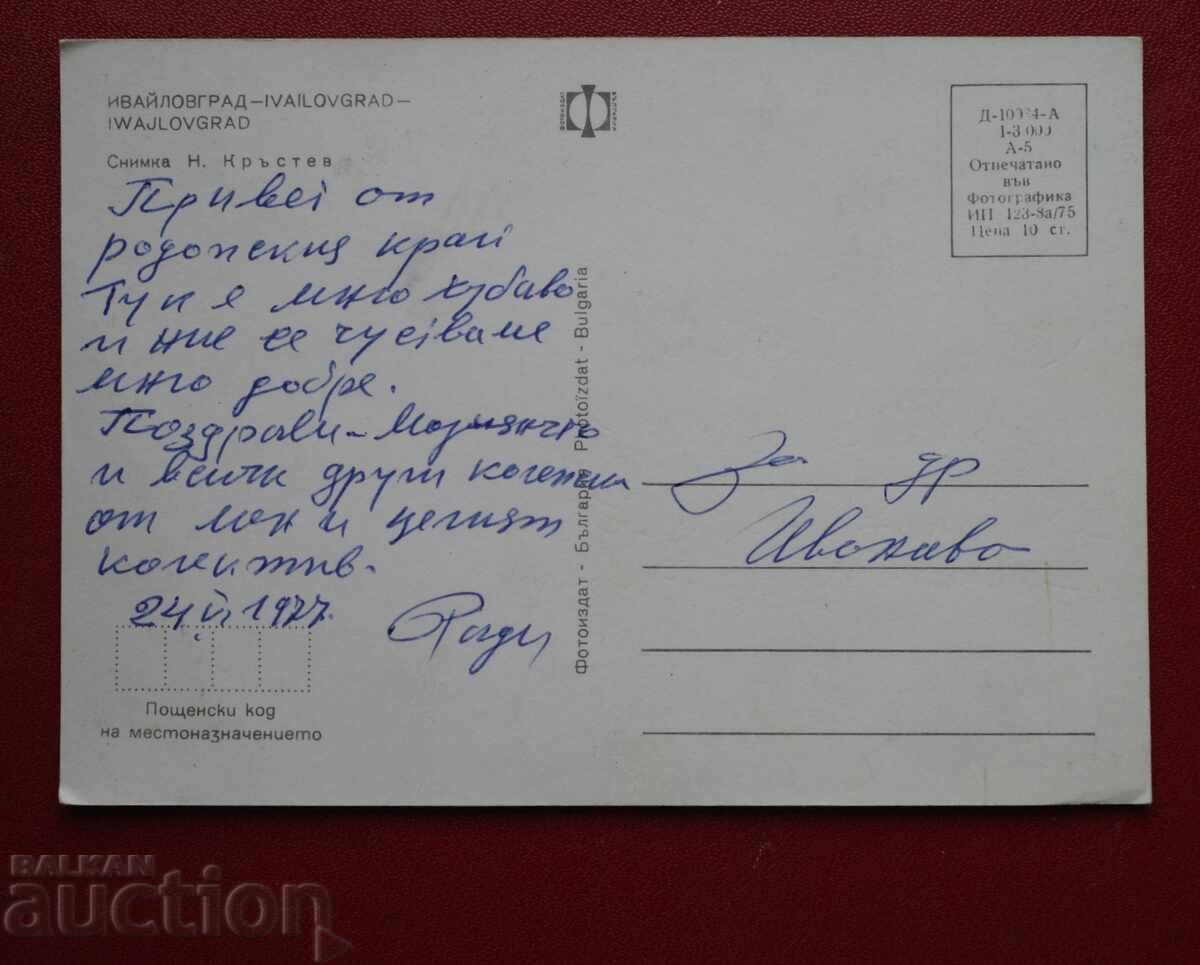 ИВАЙЛОВГРАД—IVAILOVGRAD—
IWAJLOVGRAD
Снимка Н. Кръстев
Привет от
родопския край
Тук е много хубаво
и ние се чустваме
много добре.
Поздрави
и всички други колежки
от мон и целият
колектив.
24, VI 1977.
Ради
Пощенски код
на местоназначението
ФОТОИЗДАТ
Фотоиздат - България Photoïzdat - Bulgaria
Д-10034-А
1-3 000
А-5
Отпечатано
във
Фотографика
ИП 123-8а/75
Цена 10 ст.
За др
Иванова
BALKAN
auction